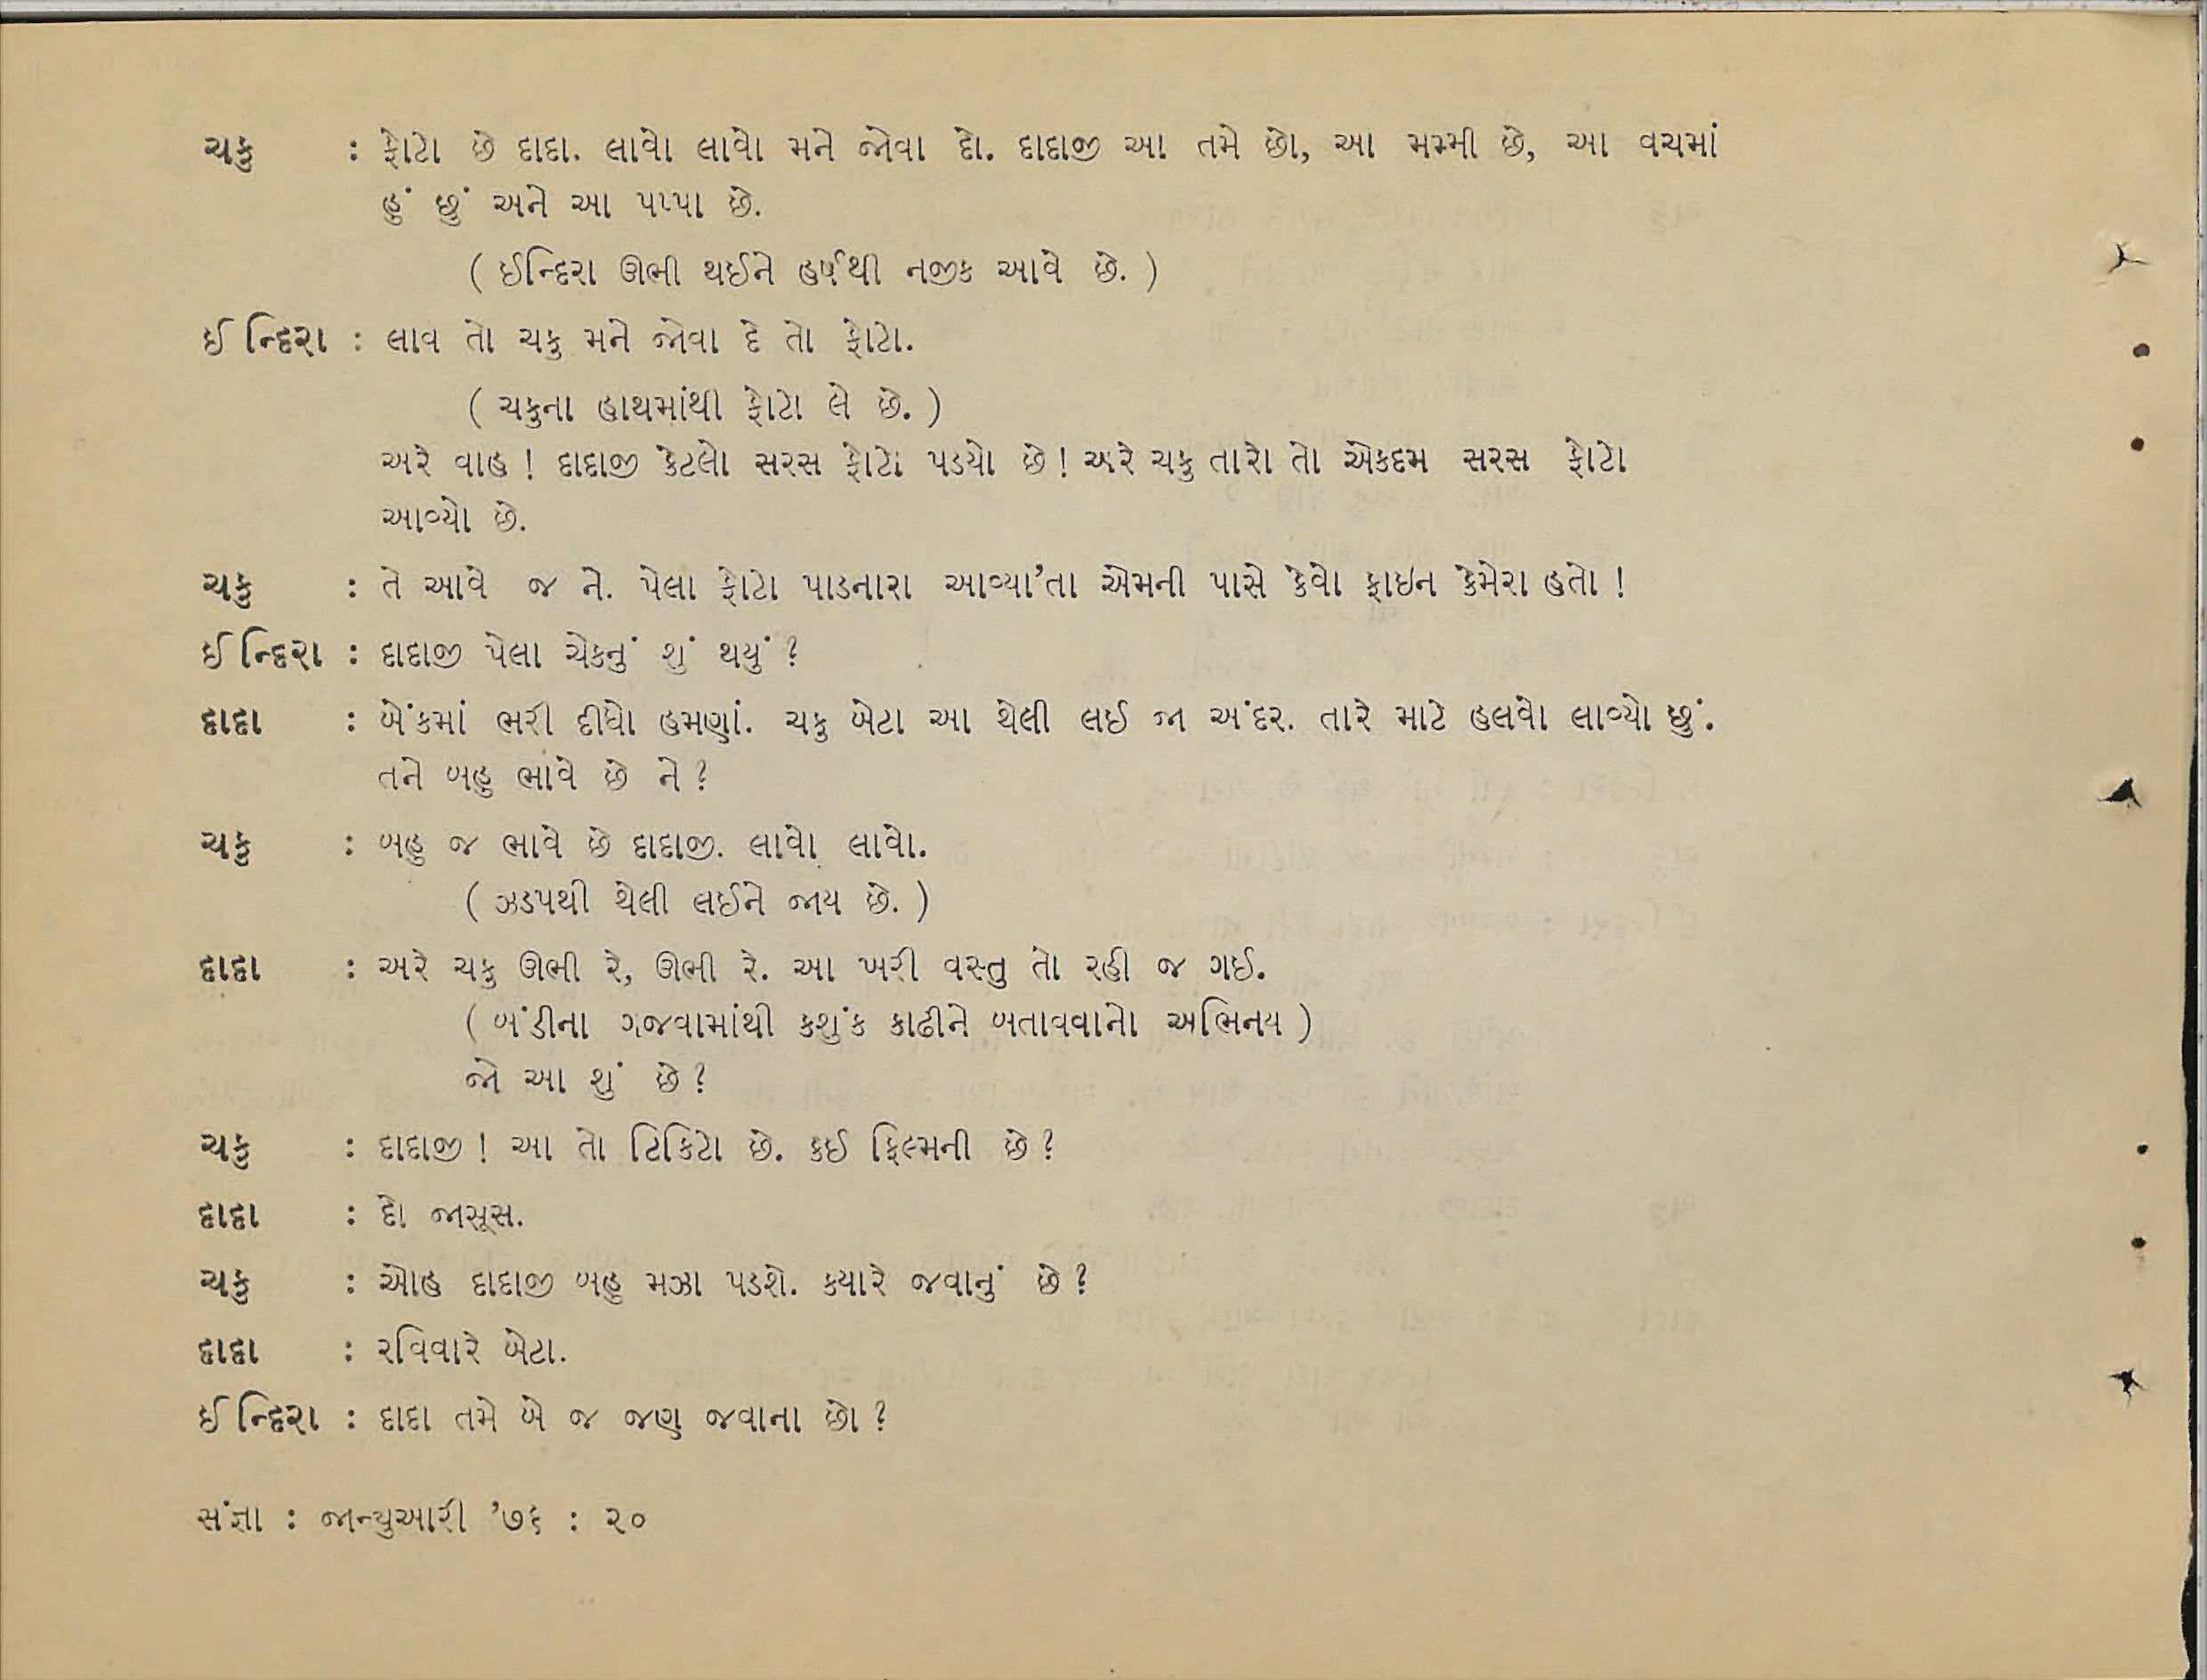 ચકુ : ફોટો છે દાદા. લાવો લાવો મને જોવા દો. દાદાજી આ તમે છો, આ મમ્મી છે, આ વચમાં
હું છું અને આ પપ્પા છે.
( ઈન્દિરા ઊભી થઈને હર્ષથી નજીક આવે છે. )
ઈન્દિરા : લાવ તો ચકુ મને જોવા દે તો ફોટો.
( ચકુના હાથમાંથી ફોટો લે છે. )
અરે વાહ ! દાદાજી કેટલો સરસ ફોટો પડયો છે ! અરે ચકુ તારો તો એકદમ સરસ ફોટો
આવ્યો છે.
ચકુ : તે આવે જ ને. પેલા ફોટો પાડનારા આવ્યા’તા એમની પાસે કેવો ફાઇન કેમેરા હતો !
ઈન્દિરા : દાદાજી પેલા ચેકનું શું થયું ?
દાદા : બેંકમાં ભરી દીધો હમણાં. ચકુ બેટા આ થેલી લઈ જા અંદર. તારે માટે હલવો લાવ્યો છું.
તને બહુ ભાવે છે ને ?
ચકુ : બહુ જ ભાવે છે દાદાજી. લાવો લાવો.
( ઝડપથી થેલી લઈને જાય છે. )
દાદા : અરે ચકુ ઊભી રે, ઊભી રે. આ ખરી વસ્તુ તો રહી જ ગઈ.
( બંડીના ગજવામાંથી કશુંક કાઢીને બતાવવાનો અભિનય )
જો આ શું છે ?
ચકુ : દાદાજી ! આ તો ટિકિટો છે. કઈ ફિલ્મની છે ?
દાદા : દો જાસૂસ.
ચકુ : ઓહ દાદાજી બહુ મઝા પડશે. કયારે જવાનું છે ?
દાદા : રવિવારે બેટા.
ઈન્દિરા : દાદા તમે બે જ જણ જવાના છો ?
સંજ્ઞા : જાન્યુઆરી ’૭૬ : ૨૦